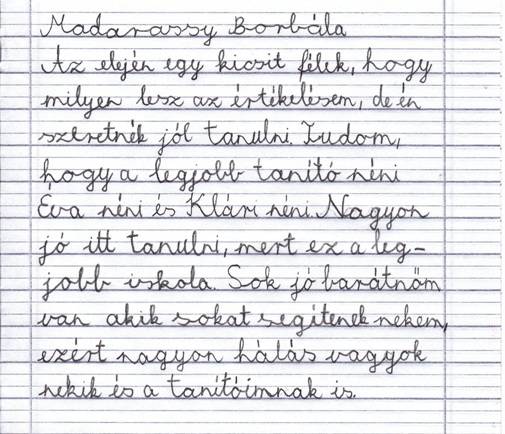 Madarassy Borbála
Az elején egy kicsit félek, hogy
milyen lesz az értékelésem, de én
szeretnék jól tanulni. Tudom,
hogy a legjobb tanító néni
Éva néni és Klári néni. Nagyon
jó itt tanulni, mert ez a leg-
jobb iskola. Sok jó barátnőm
van akik sokat segítenek nekem,
ezért nagyon hálás vagyok
nekik és a tanítóimnak is.